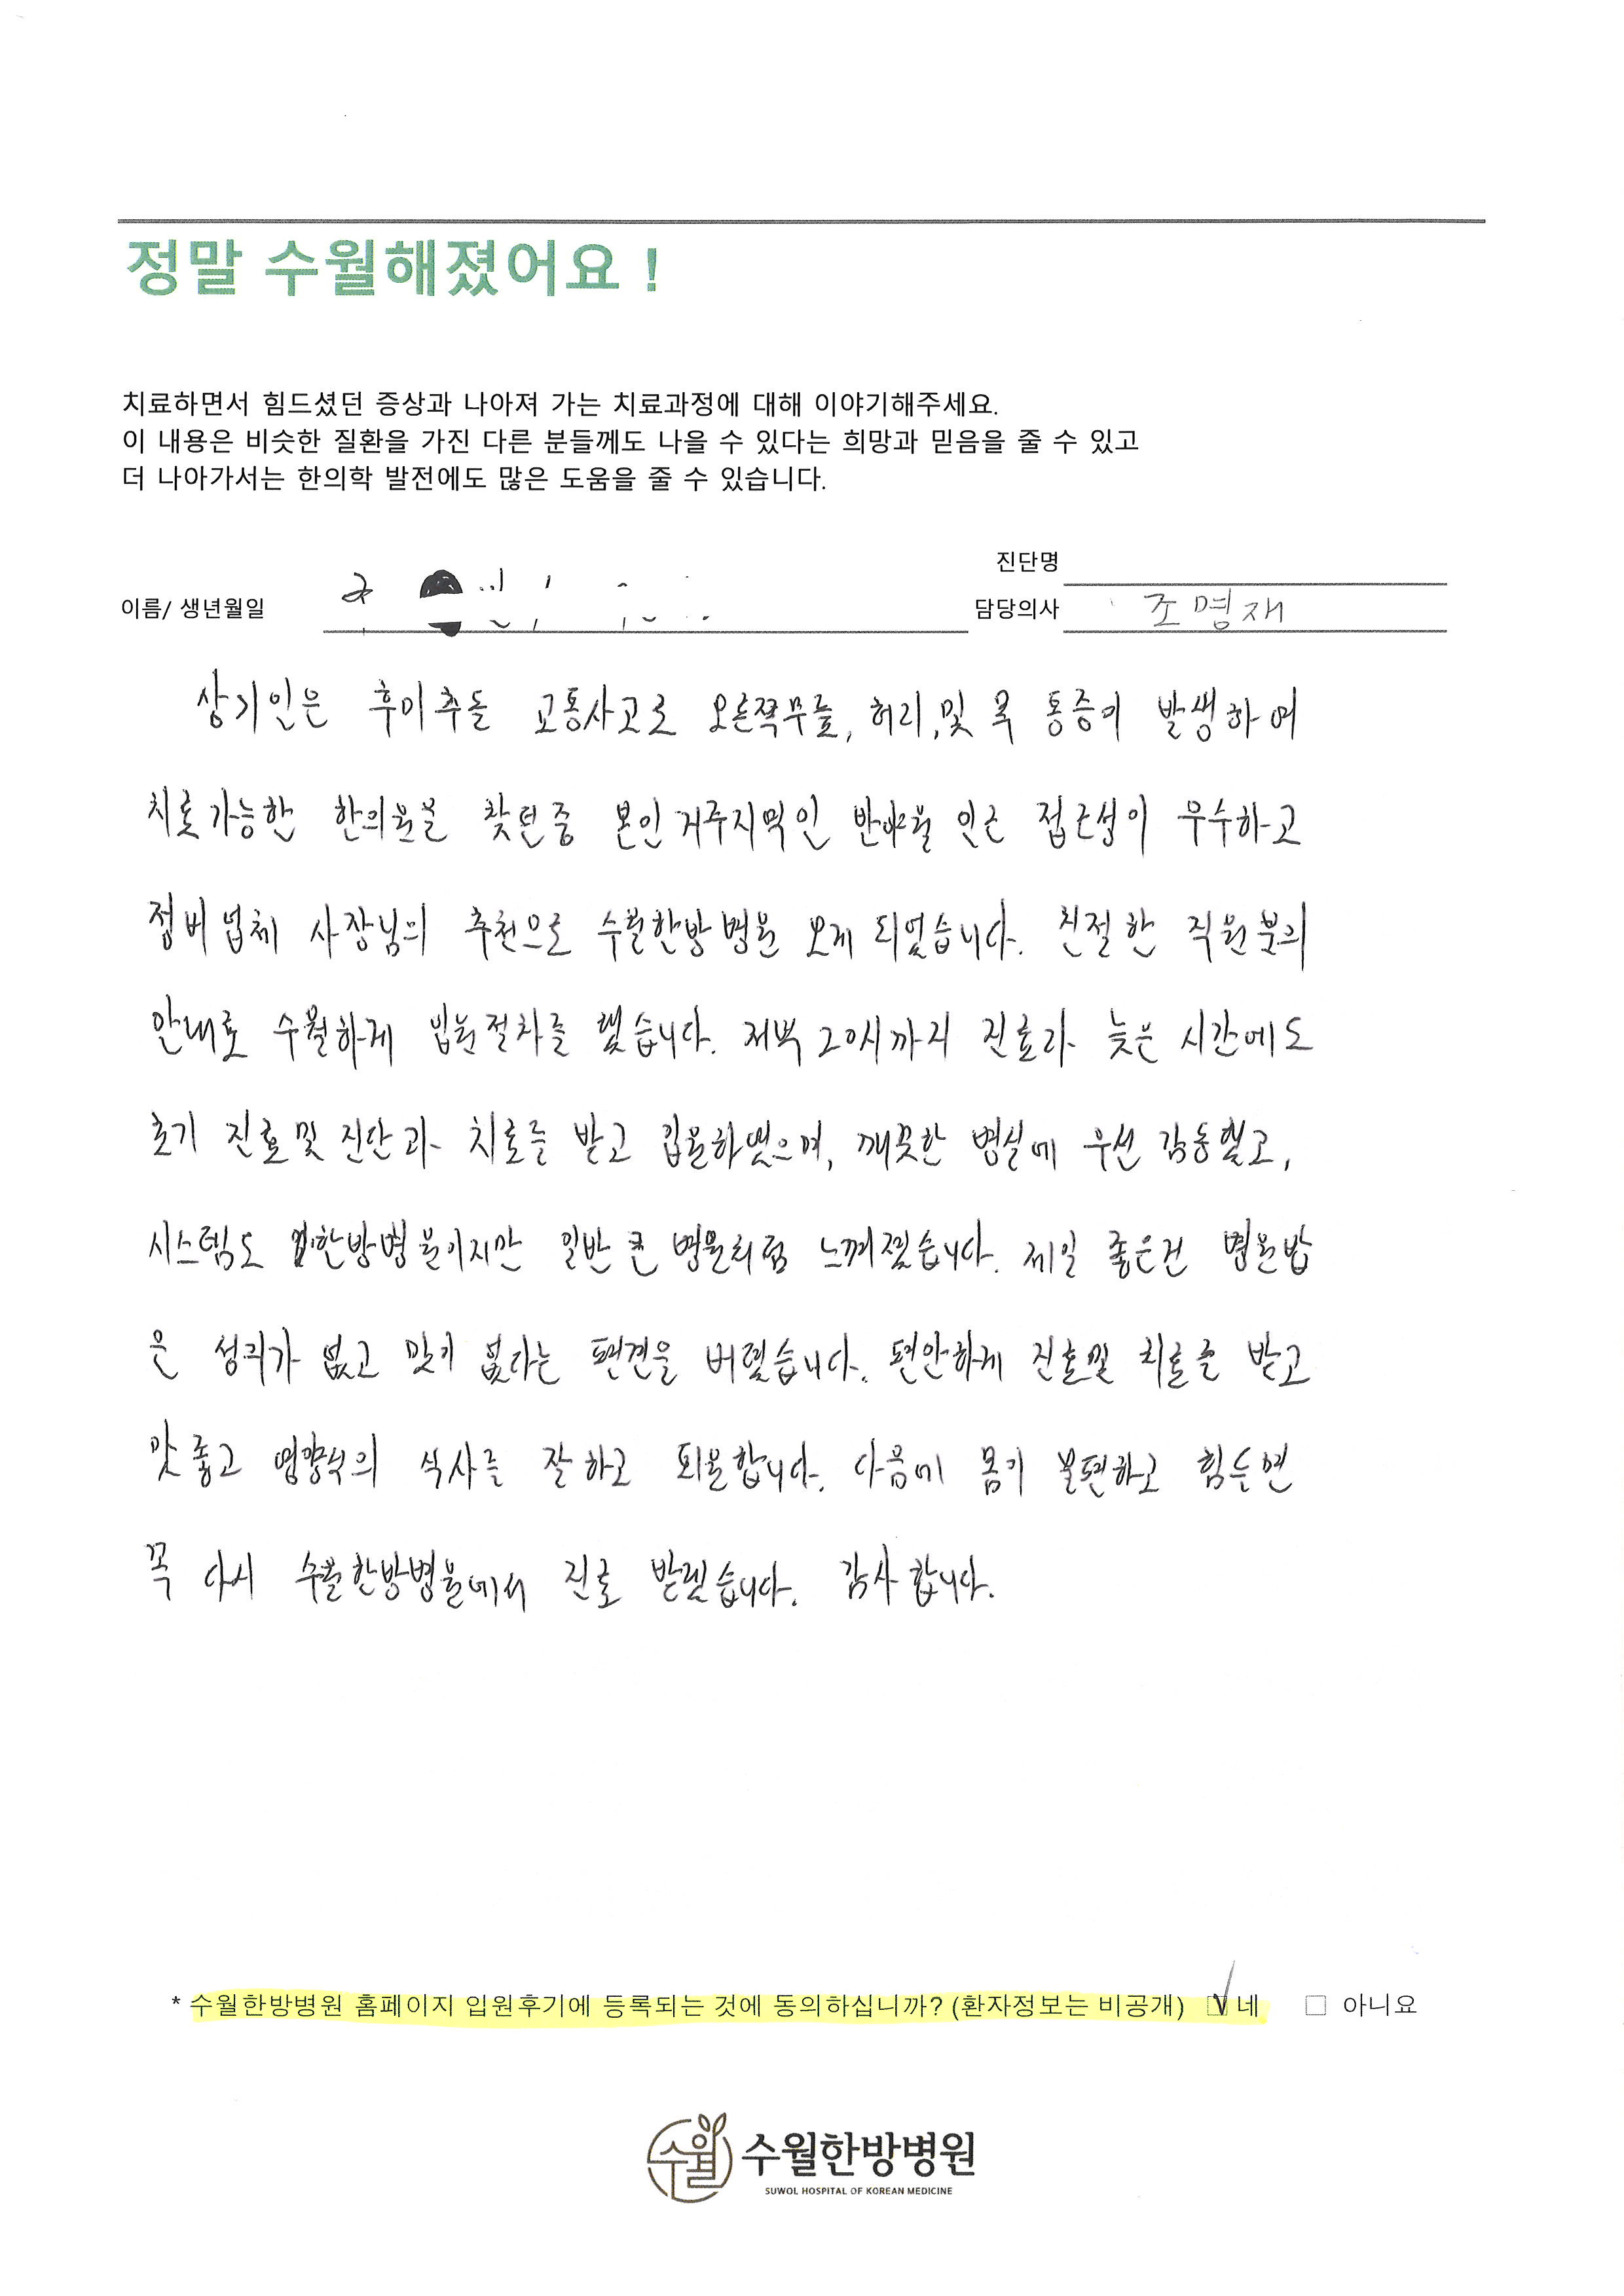 정말 수월해졌어요 !
치료하면서 힘드셨던 증상과 나아져 가는 치료과정에 대해 이야기해주세요.
이 내용은 비슷한 질환을 가진 다른 분들께도 나을 수 있다는 희망과 믿음을 줄 수 있고
더 나아가서는 한의학 발전에도 많은 도움을 줄 수 있습니다.
진단명
이름/ 생년월일
담당의사 조명재
상기인은 후미추돌 교통사고로 오른쪽무릎, 허리, 및 목 통증이 발생하여
치료가능한 한의원을 찾던중 본인거주지역인 반야월 인근 접근성이 우수하고
정비업체 사장님의 추천으로 수월한방병원 오게 되었습니다. 친절한 직원분의
안내로 수월하게 입원절차를 했습니다. 저녁 20시까지 진료라 늦은 시간에도
초기 진료및 진단과 치료를 받고 입원하였으며, 깨끗한 병실에 우선 감동했고,
시스템도 한방병원이지만 일반 큰 병원처럼 느껴졌습니다. 제일 좋은건 병원밥
은 성의가 없고 맛이 없다는 편견을 버렸습니다. 편안하게 진료및 치료를 받고
맛좋고 영양식의 식사를 잘하고 퇴원합니다. 다음에 몸이 불편하고 힘들면
꼭 다시 수월한방병원에서 진료 받겠습니다. 감사합니다.
* 수월한방병원 홈페이지 입원후기에 등록되는 것에 동의하십니까? (환자정보는 비공개) ☑ 네 □ 아니요
수월 수월한방병원
SUWOL HOSPITAL OF KOREAN MEDICINE